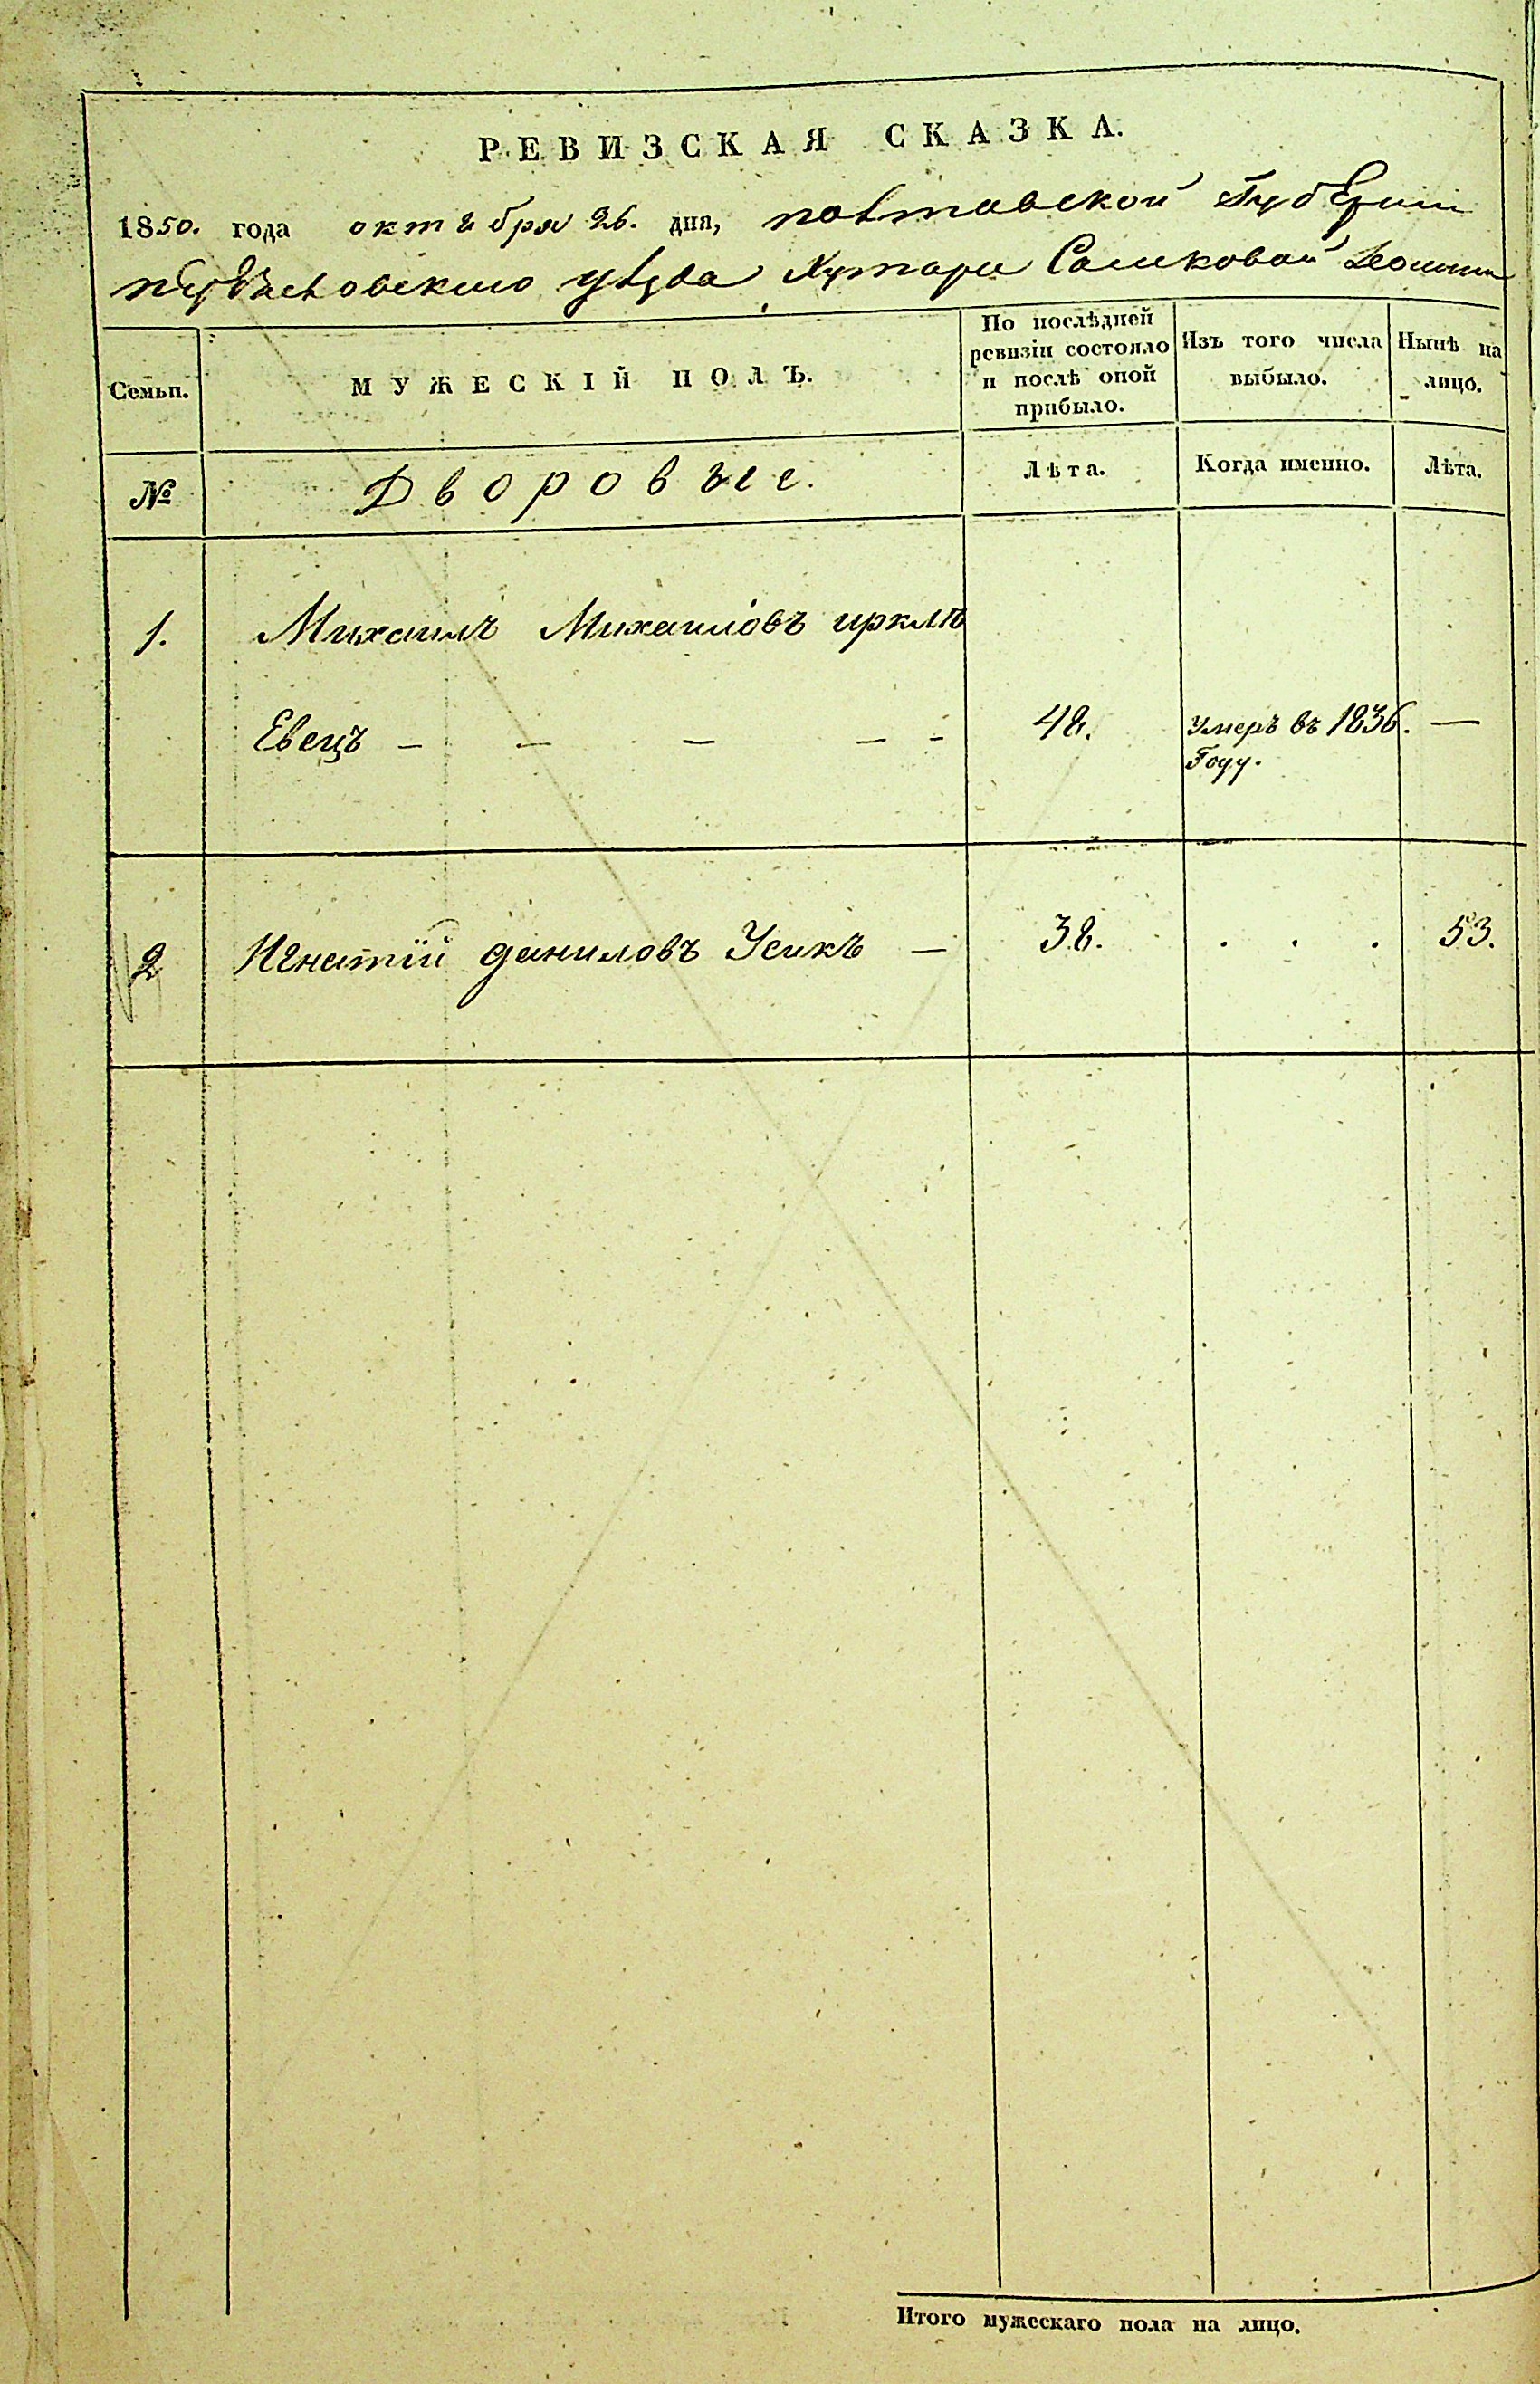 РЕВИЗСКАЯ СКАЗКА.
1850. года октября 26. дня, полтавской Губерніи
уѣзда Хутора
Семьи.
МУЖЕСКІЙ ПОЛЪ.
По послѣдней ревизіи состояло и послѣ оной прибыло.
Изъ того числа выбыло.
Нынѣ на лицо.
№
Дворовые.
Лѣта.
Когда именно.
Лѣта.
1.
Михаилъ Михаиловъ иркли
Евецъ — — — — —
48.
Умеръ въ 1836. —
Году.
2 Игнатій даниловъ Усикъ — 38. . . . 53.
Итого мужескаго пола на лицо.